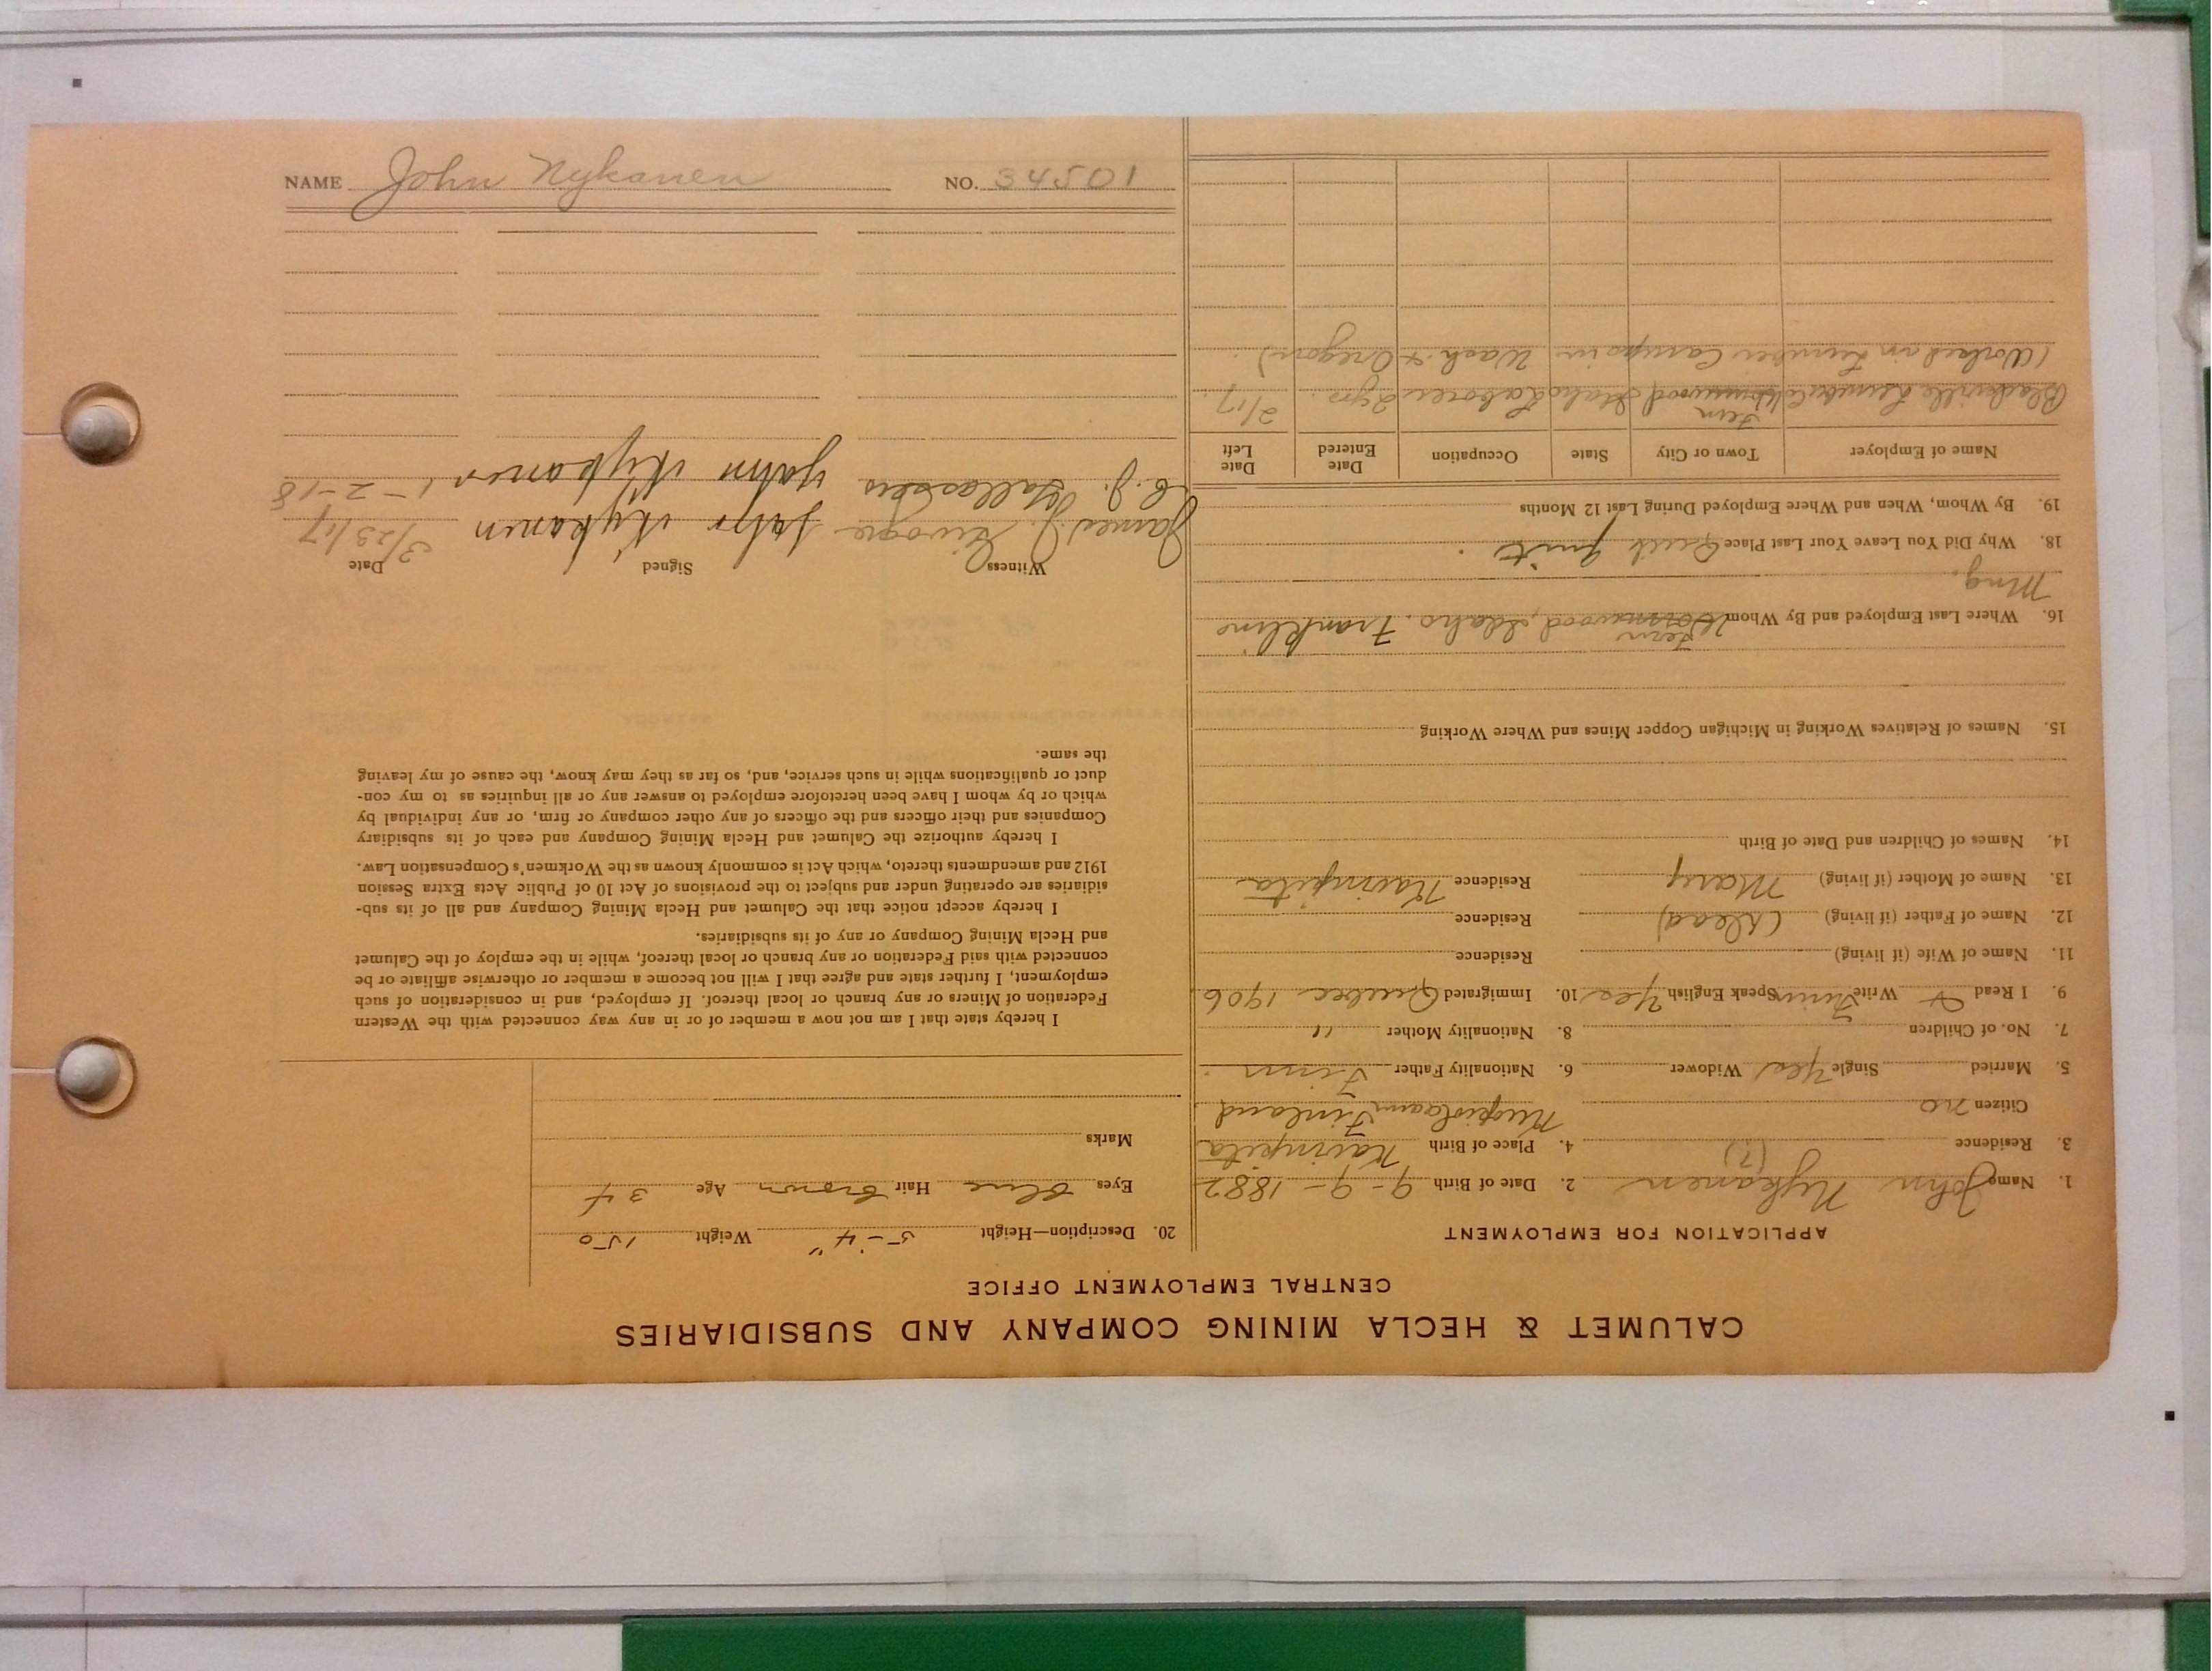 CALUMET & HECLA MINING COMPANY AND SUBSIDIARIES
CENTRAL EMPLOYMENT OFFICE
APPLICATION FOR EMPLOYMENT
1. Name John Nykanen 2. Date of Birth 9-9-1882
(?)
3. Residence 4. Place of Birth
Citizen no Finland
5. Married Single Yes Widower 6. Nationality Father Finn
7. No. of Children 8. Nationality Mother "
9. I Read & Write Finn Speak English Yes 10. Immigrated Quebec 1906
11. Name of Wife (if living) Residence
12. Name of Father (if living) (Dead) Residence
13. Name of Mother (if living) Mary Residence
14. Names of Children and Date of Birth
15. Names of Relatives Working in Michigan Copper Mines and Where Working
Fern
16. Where Last Employed and By Whom Wormwood, Idaho. Franklin
Mng.
18. Why Did You Leave Your Last Place Quit
19. By Whom, When and Where Employed During Last 12 Months
Name of Employer Town or City State Occupation Date Entered Date Left
Fern
Blackville Lumber Co Wormwood Idaho Laborer 2 yrs. 2/17
(Worked in Lumber Camps in Wash & Oregon)
20. Description—Height 5-4" Weight 150
Eyes Blue Hair Brown Age 34
Marks
I hereby state that I am not now a member of or in any way connected with the Western
Federation of Miners or any branch or local thereof. If employed, and in consideration of such
employment, I further state and agree that I will not become a member or otherwise affiliate or be
connected with said Federation or any branch or local thereof, while in the employ of the Calumet
and Hecla Mining Company or any of its subsidiaries.
I hereby accept notice that the Calumet and Hecla Mining Company and all of its sub-
sidiaries are operating under and subject to the provisions of Act 10 of Public Acts Extra Session
1912 and amendments thereto, which Act is commonly known as the Workmen's Compensation Law.
I hereby authorize the Calumet and Hecla Mining Company and each of its subsidiary
Companies and their officers and the officers of any other company or firm, or any individual by
which or by whom I have been heretofore employed to answer any or all inquiries as to my con-
duct or qualifications while in such service, and, so far as they may know, the cause of my leaving
the same.
Witness Signed Date
James J. John Nykanen 3/23/17
John Nykanen 1-2-18
NAME John Nykanen NO. 34501